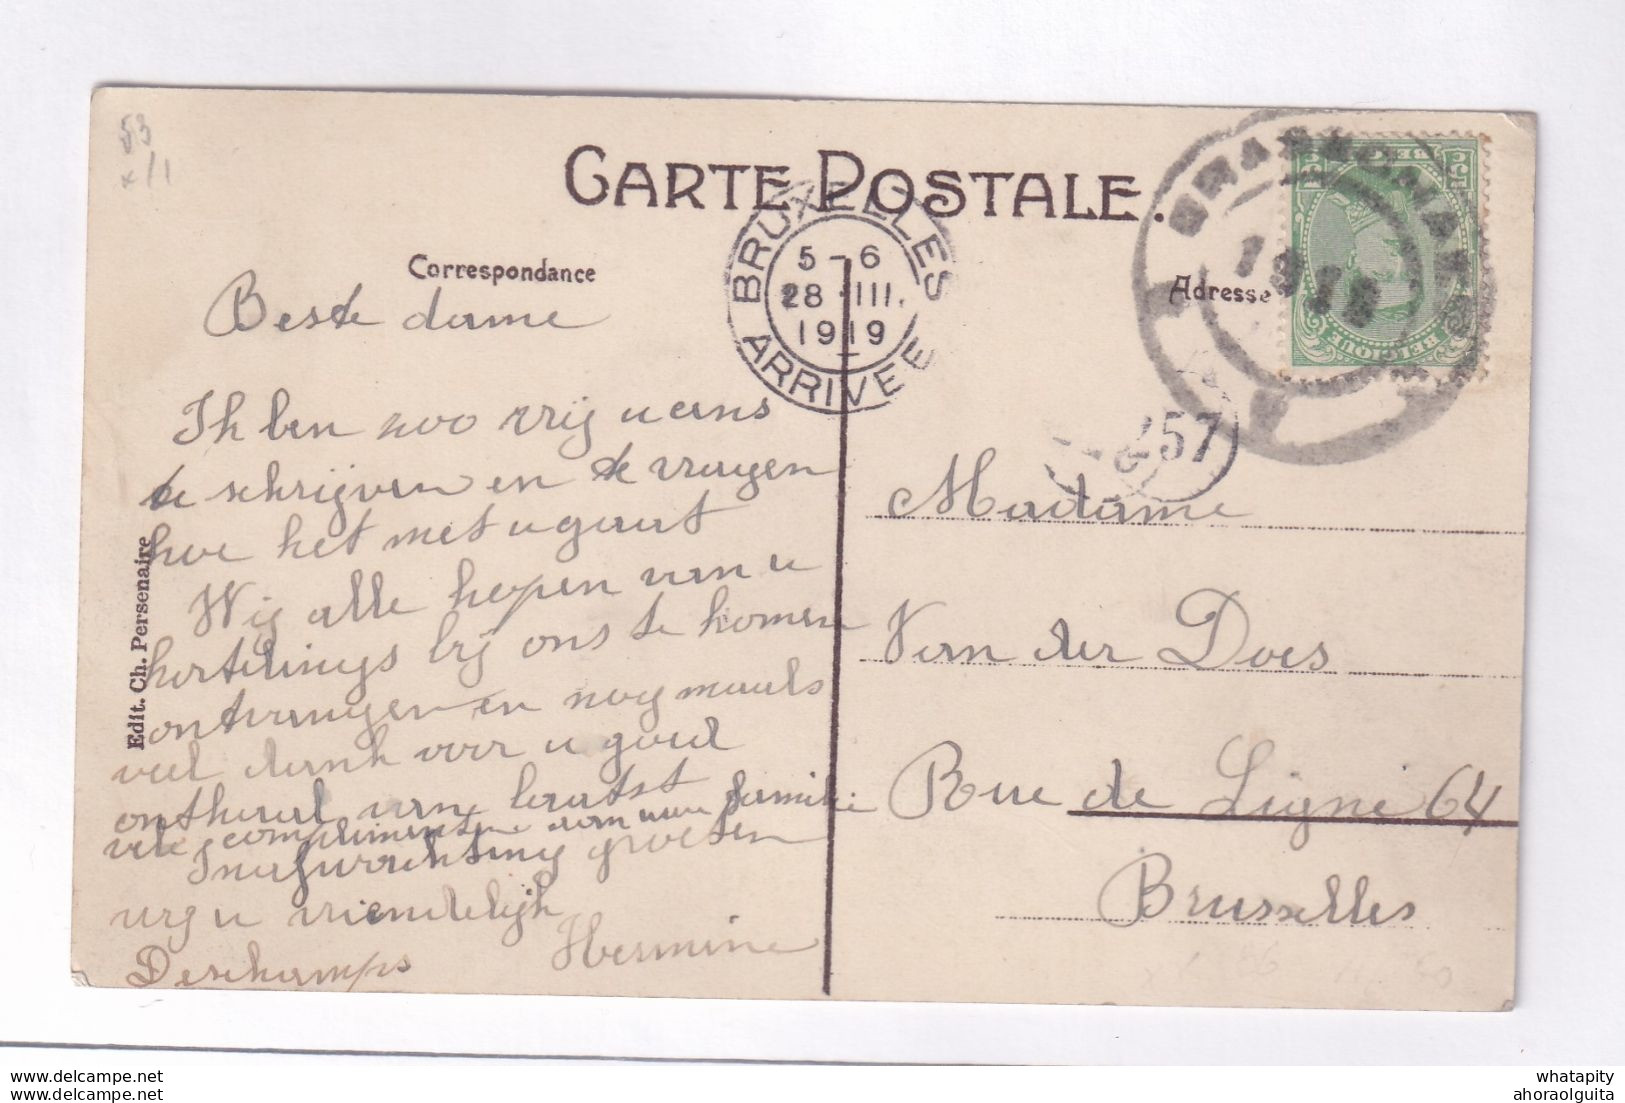 53
x/1
CARTE POSTALE.
Correspondance
Adresse
BRUXELLES
5-6
28 III.
1919
ARRIVEE
BELGIQUE
57
Beste dame
Ik ben zoo vrij u eens
te schrijven en te vragen
hoe het met u gaat
Wij alle hopen van u
kortelings bij ons te komen
ontvangen en nog maals
veel dank voor u goed
onthaal van laatst
vele complimenten van mijn familie
Inafwachting groeten
wij u vriendelijk
Hermine
Deschamps
Edit. Ch. Persenaire
Madame
Van der Does
Rue de Ligne 64
Bruxelles
whatapity
ahoraolguita